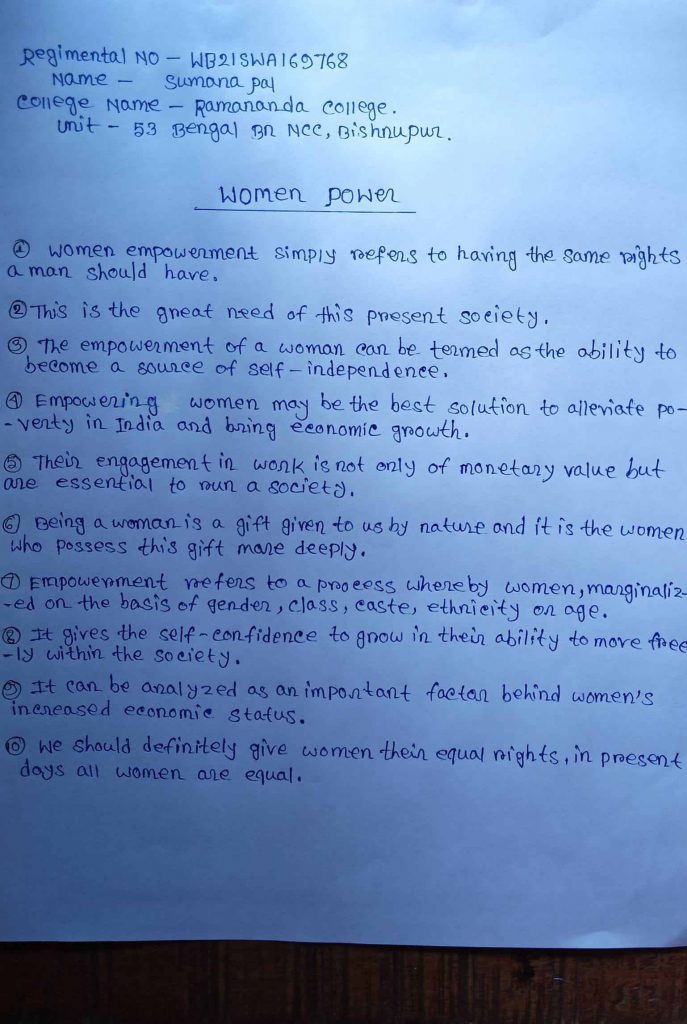 Regimental No - WB21SWA169768
Name - Sumana pal
College Name - Ramananda College.
Unit - 53 Bengal Bn NCC, Bishnupur.
Women power
① Women empowerment simply refers to having the same rights
a man should have.
② This is the great need of this present society.
③ The empowerment of a woman can be termed as the ability to
become a source of self-independence.
④ Empowering women may be the best solution to alleviate po-
-verty in India and bring economic growth.
⑤ Their engagement in work is not only of monetary value but
are essential to run a society.
⑥ Being a woman is a gift given to us by nature and it is the women
who possess this gift more deeply.
⑦ Empowerment refers to a process whereby women, marginaliz-
-ed on the basis of gender, class, caste, ethnicity or age.
⑧ It gives the self-confidence to grow in their ability to move free
-ly within the society.
⑨ It can be analyzed as an important factor behind women's
increased economic status.
⑩ We should definitely give women their equal rights, in present
days all women are equal.